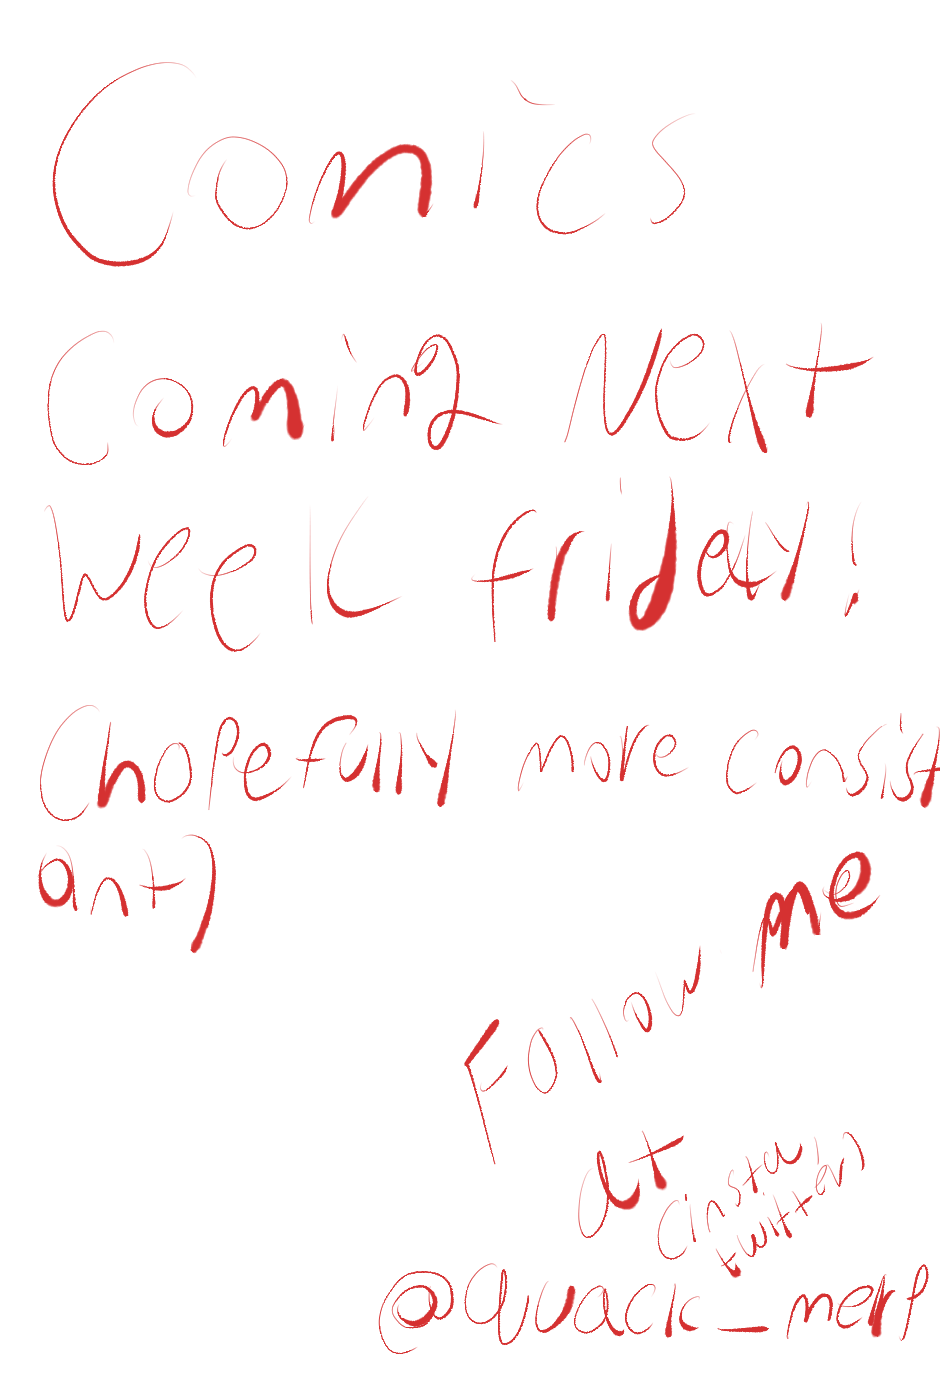 Comics
Coming Next
Week friday!
(hopefully more consist
ant)
Follow me
at (insta,
twitter)
@quack_merp